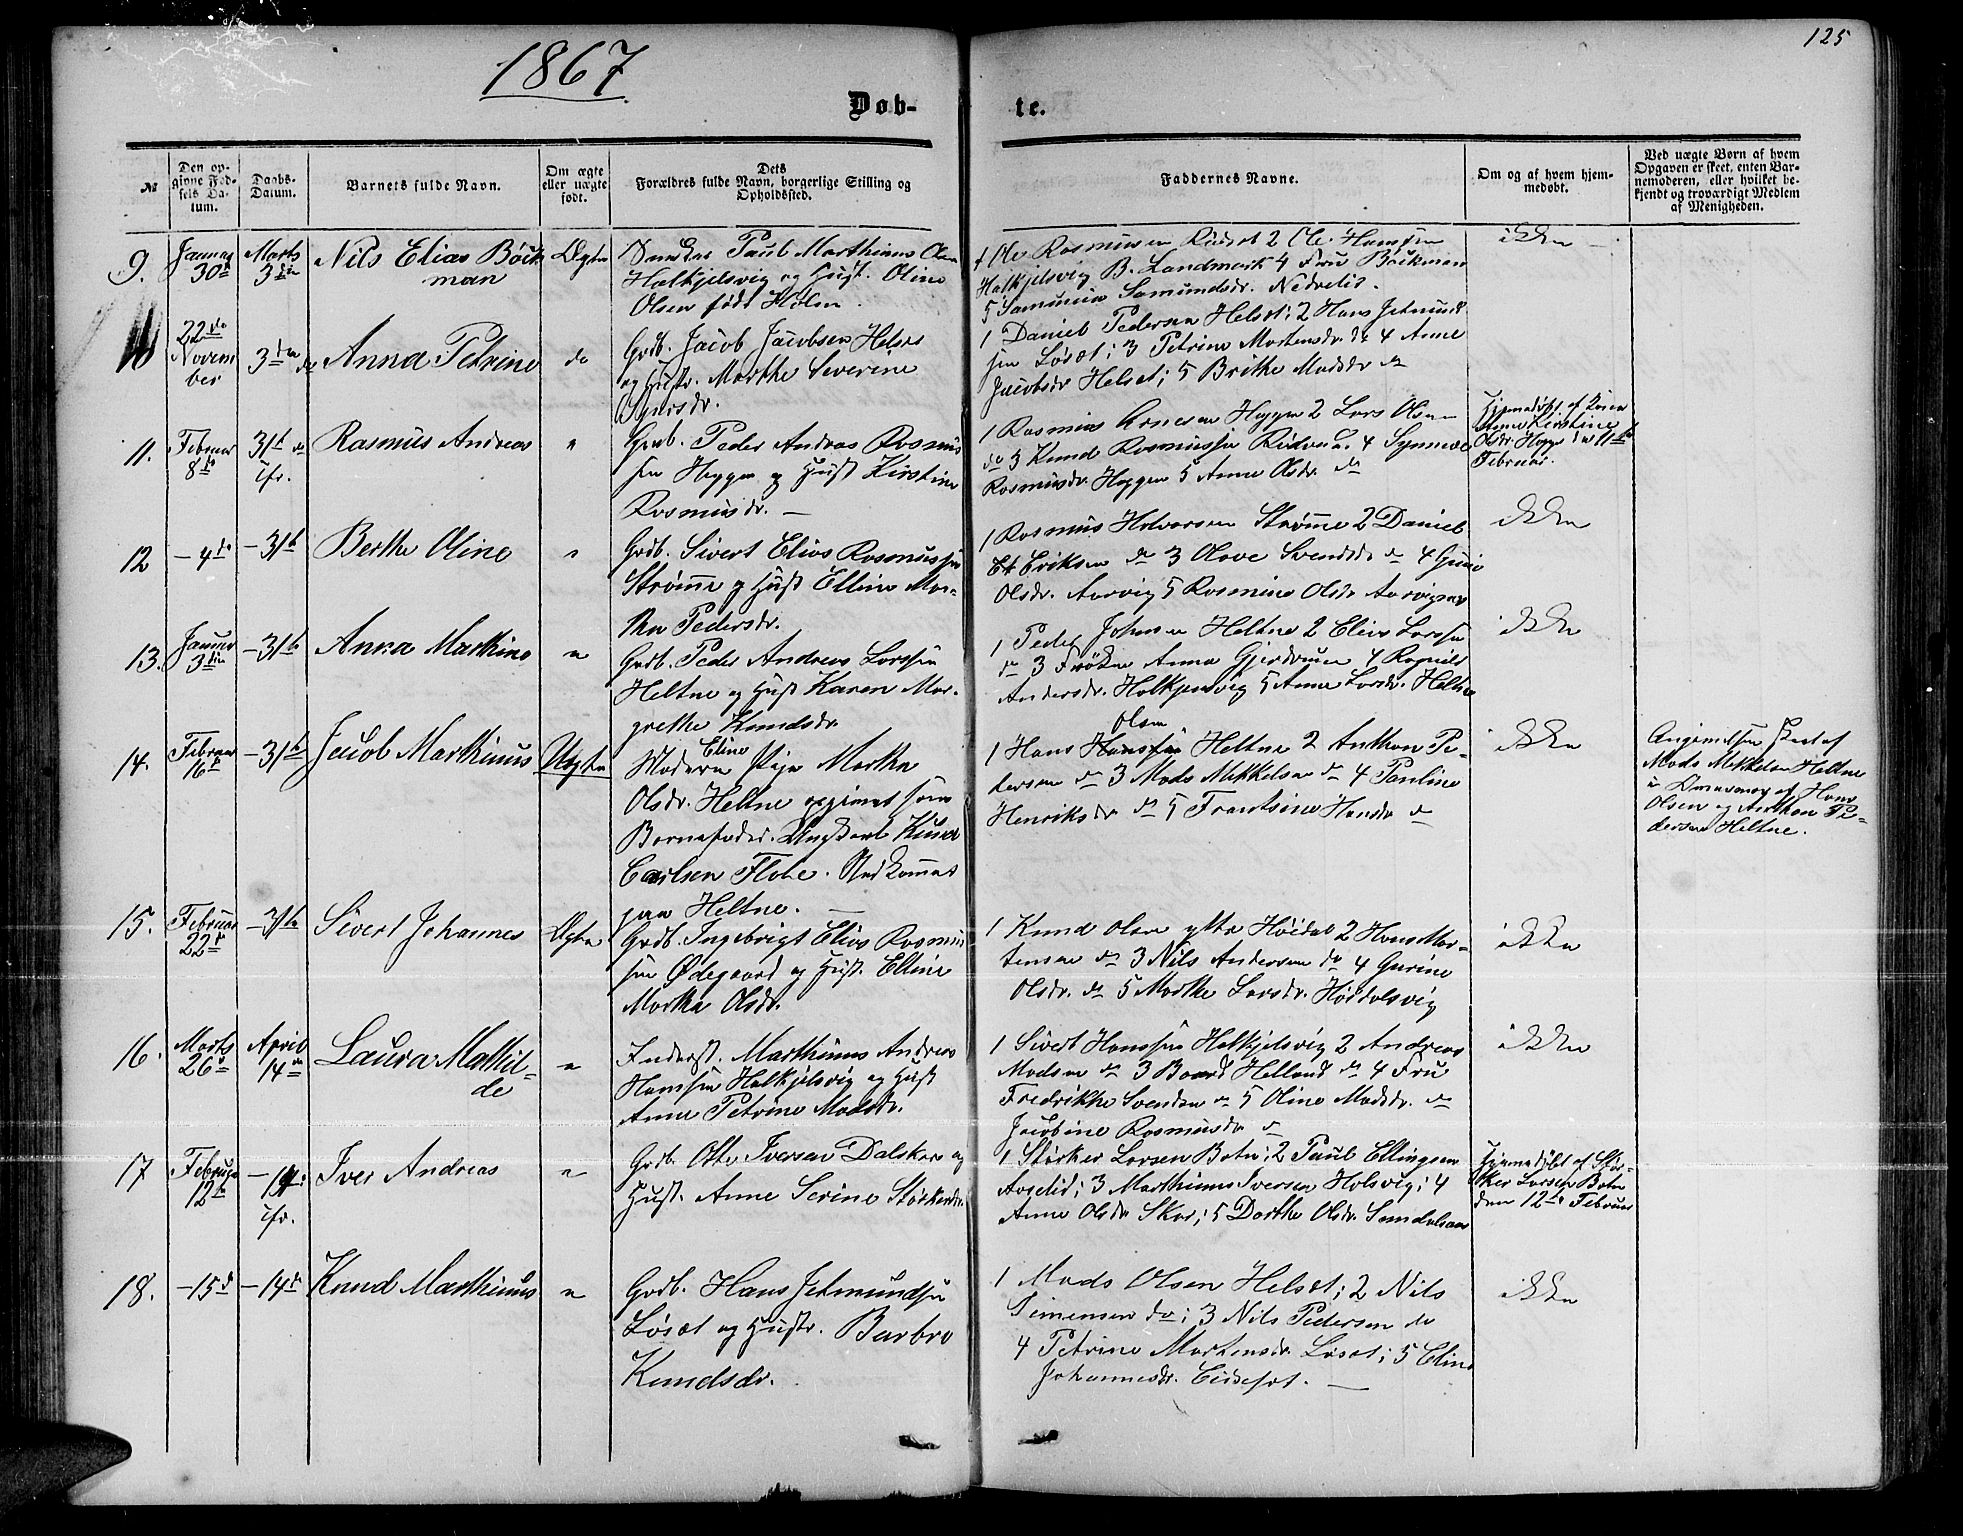 1867
125
Døb-
te.
№
Den op-
givne Fød-
sels Da-
tum.
Daabs-
Datum.
Barnets fulde Navn.
Om ægte
eller uægte
født.
Dets
Forældres fulde Navn, borgerlige Stilling og
Opholdssted.
Faddernes Navne.
Om og af hvem hjem-
medøbt.
Ved uægte Børn af hvem
Opgaven er skeet, enten Bar-
nemoderen, eller hvilket be-
kjendt og troværdigt Medlem
af Menigheden.
9.
Januar
30
Marts
3
Nils Elias Böck-
man
Ægte
Paul Marthinus Olsen
Holkjelsvig og Hust. Oline
Olsen født Holm
1 Ole Rasmussen Ridset 2 Ole Hanssen
Holkjelsvig B. Landmark 4 Fru Bøckman
5 Samunine Samundsdr. Nedrelid.
ikke
10
22de
Novem-
ber
3die
Anna Petrine
do
Grdb. Jacob Jacobsen Helset
og Hustr. Marthe Severine
Iversdr.
1 Daniel Pedersen Helset; 2 Hans Jetmund-
sen Løset; 3 Petrine Mortensdr. do 4 Anne
Jacobsdr Helset; 5 Brithe Madsdr do
11.
Februar
8de
31te
Rasmus Andreas
"
Grdb. Peder Andreas Rasmus-
sen Hyggen og Hust Kirstine
Rasmusdr. —
1 Rasmus Arnesen Hyggen 2 Lars Olsen
do 3 Knud Rasmussen 4 Synneve
Rasmusdr. Hyggen 5 Anne Olsdr. do
Hjemmedøbt af
Kirstine
Olsdr. 11te
Februar.
12
— 4de
— 31te
Berthe Oline
"
Grdb. Sivert Elias Rasmussen
Strømme og Hust Elline Mar-
tha Pedersdr.
1 Rasmus Halvorsen Strømme 2 Daniel
Eriksen do 3 Olave Svendsdr do 4
Olsdr. Aarvig 5 Rasmine Olsdr Aarvignes
ikke
13.
Januar
3die
— 31te
Anna Marthine
"
Grdb. Peder Andreas Larssen
Heltne og Hust Karen Mar-
grethe Knudsdr.
1 Peder Johnsen Heltne 2 Elias Larssen
do 3 Frøken Anna Gjerdrum 4 Ragnild
Andersdr. Holkjensvig 5 Anne Larsdr. Heltne
ikke
14.
Februar
16
— 31te
Jacob Marthinus
Uægte
Moderen Pige Eline Martha
Olsdr. Heltne opgivet som
Barnefader. Ungkarl Knud
Carlsen Flohe. Stedkommet
paa Heltne. —
1 Hans Olsen Heltne 2 Anthon Pe-
dersen do 3 Mads Mikkelsen do 4 Pauline
Henriksdr do 5 Frantsine Hansdr do
ikke
Angivelsen skeet af
Mads Mikkelsen Heltne
i Overværelse af Hans
Olsen og Anthon Pe-
dersen Heltne.
15.
Februar
22
— 31te
Sivert Johannes
Ægte
Grdb. Ingebrigt Elias Rasmus-
sen Ødegaard og Hust. Elline
Martha Olsdr.
1 Knud Olsen ytre Høidal 2 Hans Mor-
tensen do 3 Nils Andersen do 4 Gurine
Olsdr. do 5 Marthe Larsdr. Høidalsvig
ikke
16.
Marts
26
April
14
Laura Mathil-
de
"
Inderst. Marthinus Andreas
Hanssen Holkjelsvig og Hust
Anne Petrine Madsdr.
1 Sivert Hanssen Holkjelsvig 2 Andreas
Madsen do 3 Baard Helland do 4 Fru
Fredrikke Svendsen do 5 Oline Madsdr. do
Jacobine Rasmusdr do
ikke
17
Februar
12te
— 14
Iver Andreas
"
Grdb. Otte Iversen Dalskar og
Hust. Anne Serine Størkersdr.
1 Størker Larsen Botn; 2 Paul Ellingsen
Aaselid; 3 Marthinus Iversen Holsvig; 4
Anne Olsdr. Skar; 5 Dorthe Olsdr
Hjemmedøbt af Stør-
ker Larsen Botn
den 12te Februar
18.
— 15
— 14
Knud Marthinus
"
Grdb. Hans Jetmundsen
Løset og Hustr. Barbro
Knudsdr.
1 Mads Olsen Helset; 2 Nils
Simensen do; 3 Nils Pedersen do
4 Petrine Mortensdr Løset; 5 Eline
Johannesdr. Eideset. —
ikke